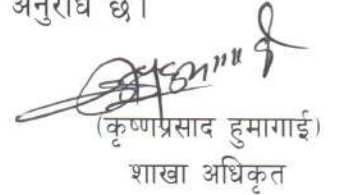 अनुरोध छ।
(कृष्णप्रसाद हुमागाई)
शाखा अधिकृत